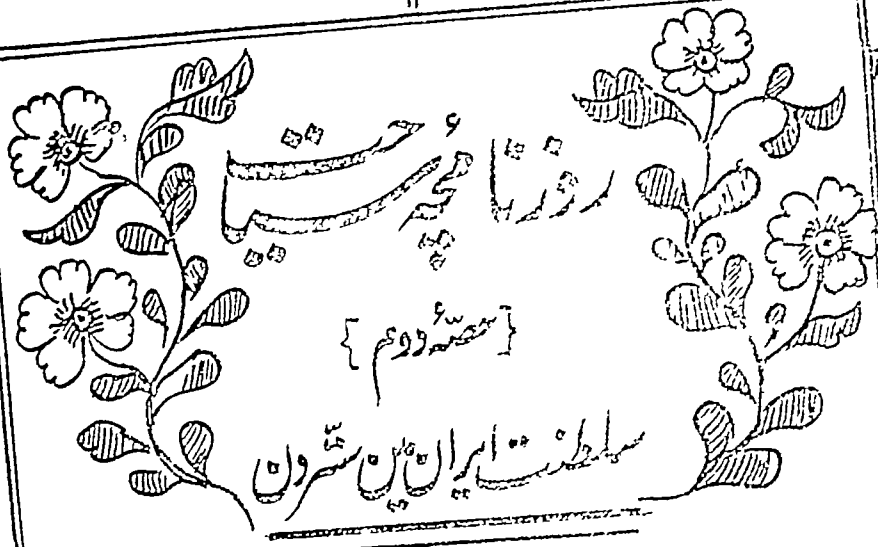 روزنامچۂ سیاحت
{حصّۂ دوم}
سلطنت ایران مین ستّر دن